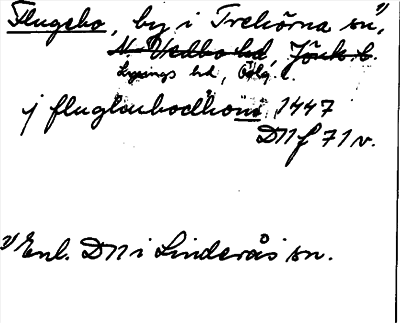 Flugebo, by i Trehörna sn,¹⁾
N. Vedbo hd, Jönk. l.
Lysings hd, Ög.
j fluglaubodhom 1447
DN f 71 v.
¹⁾ Enl. DN i Linderås sn.